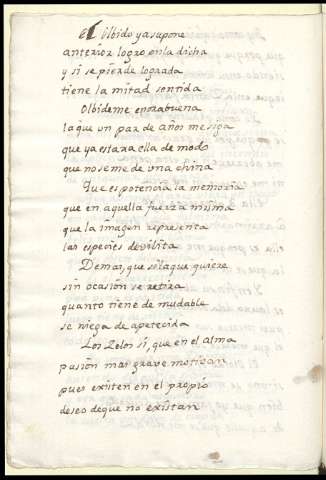 El olbido ya supone
anterior logro en la dicha
y si se pierde lograda
tiene la mitad sentida
Olbideme enorabuena
la que un par de años me siga
que ya estara ella de modo
que no se me de una china
Que es potencia la memoria
que en aquella fuerza misma
que la imagen representa
las especies devilita
Demas, que si la que quiere
sin ocasion se retira
quanto tiene de mudable
se niega de apetecida
Los Zelos si, que en el alma
pasion mas grave motiban
pues existen en el propio
deseo de que no existan